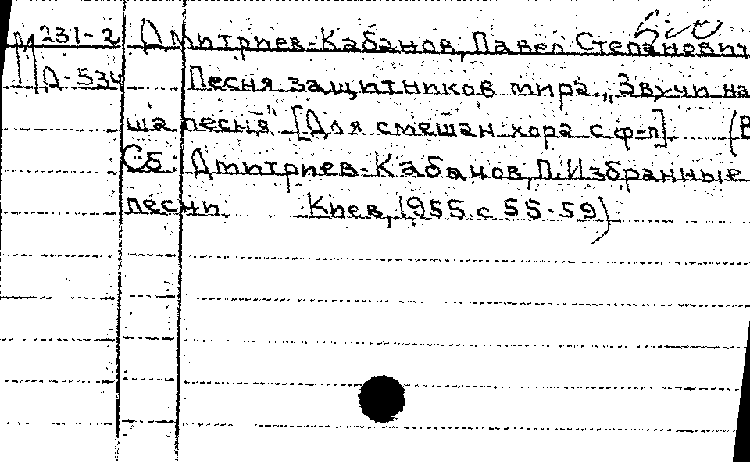 М 231-2 Дмитриев-Кабанов, Павел Степанович
Д-534 Песня защитников мира. „Звучи на
ша песня" [Для смешан. хора с ф-п]. (В
Сб: Дмитриев-Кабанов, П. Избранные
песни Киев, 1955 с 55-59)